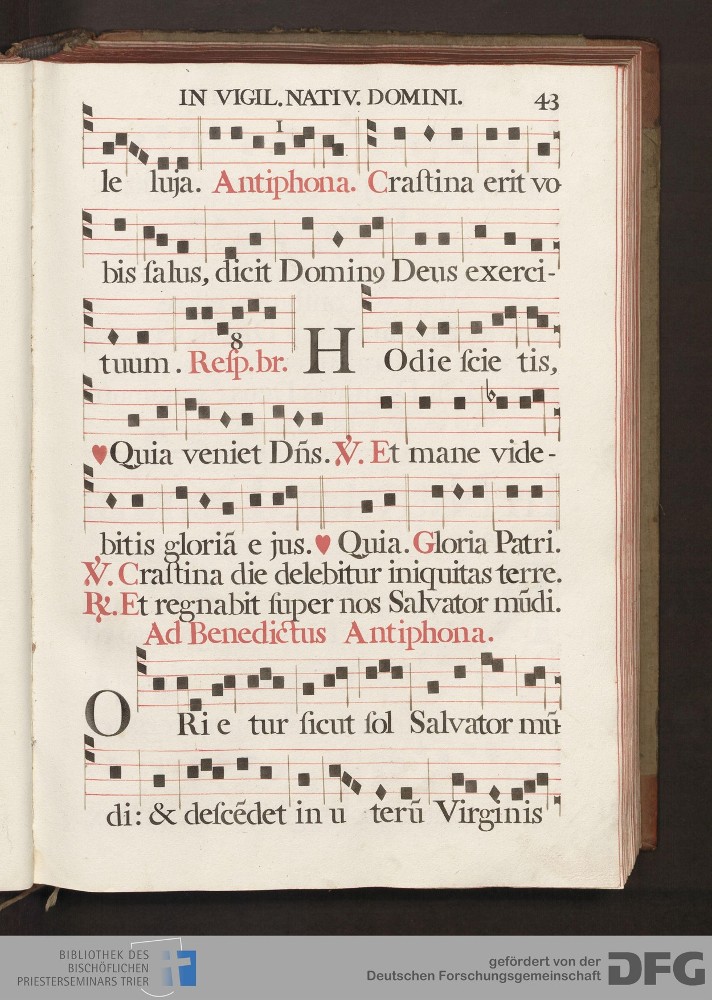 IN VIGIL. NATIV. DOMINI. 43
1
le luja. Antiphona. Craſtina erit vo
bis ſalus, dicit Dominꝯ Deus exerci-
8
tuum. Reſp. br. HOdie ſcie tis,
♥Quia veniet Dñs. ℣. Et mane vide-
bitis gloriã e jus. ♥ Quia. Gloria Patri.
℣. Craſtina die delebitur iniquitas terre.
℟. Et regnabit ſuper nos Salvator mũdi.
Ad Benedictus Antiphona.
ORi e tur ſicut ſol Salvator mũ-
di: & deſcẽdet in u terũ Virginis
BIBLIOTHEK DES
BISCHÖFLICHEN
PRIESTERSEMINARS TRIER
gefördert von der
Deutschen Forschungsgemeinschaft DFG